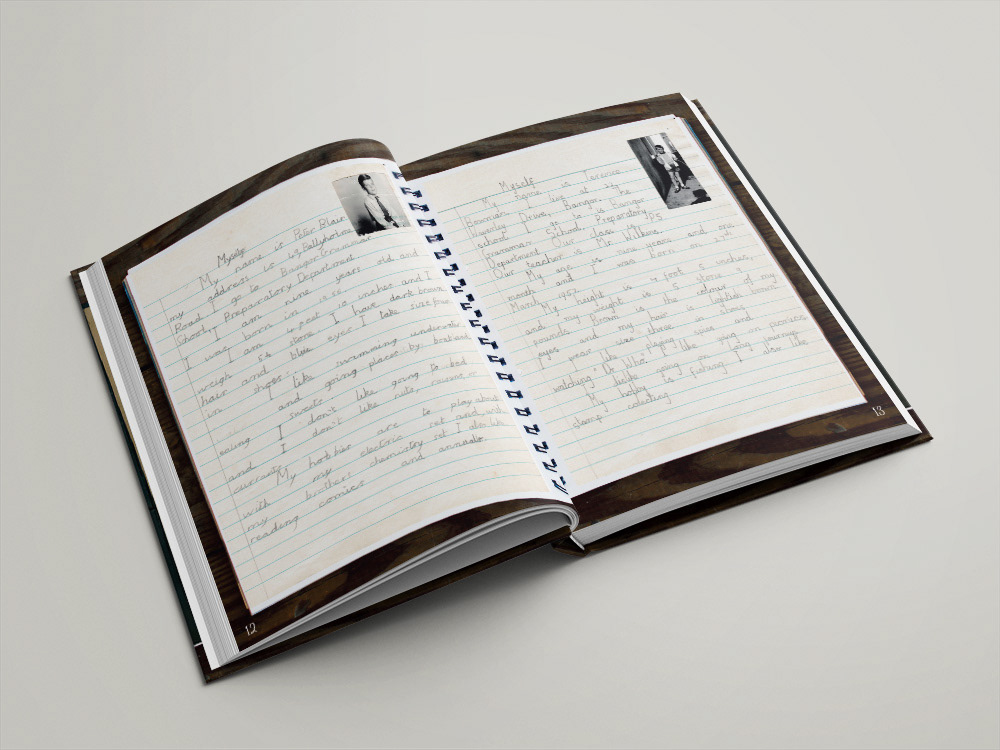 Myself
My name is Peter Blair
my address is 49, Ballyholme
Road I go to Bangor Grammar
School, Preparatory Department
I am nine years old and
I was born in
I am 4 feet 10 inches and I
weigh 5½ stone I have dark brown
hair and blue eyes I take size four
in shoes.
I like swimming underwater
and going places by
eating sweets.
I don't like going to bed
and I don't like nuts, or
currants
My hobbies are to play about
with my electric set and with
my brothers chemistry set I also like
reading comics and annuals
12
Myself
My name is Terence
Bowman I live at
Waverley Drive, Bangor. The
school I go to is Bangor
Grammar School, Preparatory
Department Our class is P5
Our teacher is Mr. Wilkins.
My age is nine years and one
month and I was born on 27th
March, 1957.
My height is 4 foot 5 inches,
and my weight is 5 stone
pounds. Brown is the colour of my
eyes and my hair is lighter brown.
I wear size three in shoes
I like playing and
watching "Dr Who". I like going on picnics
I like going on long journeys
My hobby is fishing I also like
stamp collecting
13